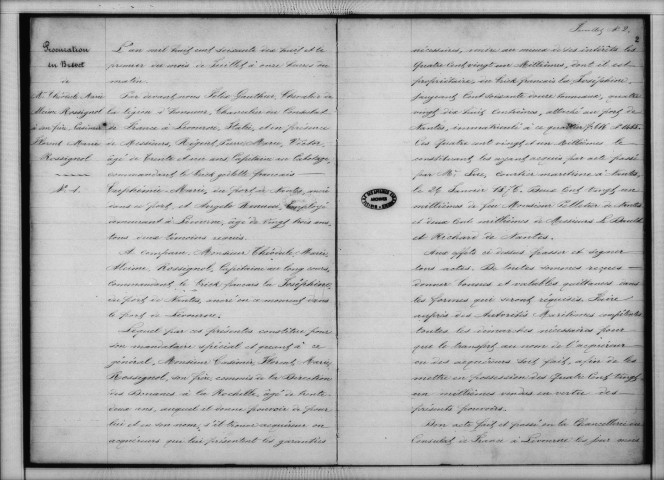 Procuration
en Brevet
de
Mr Théodule Marie
Alcime Rossignol
à son frère Casimir
Florent Marie
Rossignol
N° 1.
L'an mil huit cent soixante dix huit et le
premier du mois de Juillet à onze heures du
matin.
Par devant nous Jules Gauthier, Chevalier de
la Légion d'honneur, Chancelier du Consulat
de France à Livourne, Italie, et en présence
de Messieurs Marie, Victor,
âgé de trente et un ans Capitaine au Cabotage,
commandant le français
Euphémie Marie, du port de Nantes, ancré
dans ce port, et Angelo employé
demeurant à Livourne, âgé de vingt trois ans,
tous deux témoins requis.
A comparu Monsieur Théodule Marie
Alcime Rossignol, Capitaine au long cours,
commandant le brick français la Joséphine,
du port de Nantes, ancré en ce moment dans
le port de Livourne.
Lequel par ces présentes constitue pour
son mandataire spécial et quant à ce
général, Monsieur Casimir Florent Marie
Rossignol, son frère, commis de la Direction
des Douanes à la Rochelle, âgé de trente
deux ans, auquel il donne pouvoir de pour
lui et en son nom, s'il trouve acquéreur ou
acquéreurs qui lui présentent les garanties
Juillet N° 2.
2
nécessaires, vendre au mieux de ses intérêts les
Quatre Cent vingt un Millièmes, dont il est
propriétaire, du brick français la Joséphine,
jaugeant cent soixante onze tonneaux, quatre
vingt dix huit centièmes, attaché au port de
Nantes, immatriculé à ce quartier
Ces Quatre cent vingt un Millièmes le
constituant les ayant acquis par acte passé
par Mr courtier maritime à Nantes,
le 24 Janvier 1876. Deux Cent vingt un
millièmes de feu Monsieur Pelletier de Nantes
et deux Cent millièmes de Messieurs
et Richard de Nantes.
Aux effets ci dessus passer et signer
tous actes. De toutes sommes reçues
donner bonnes et valables quittances dans
les formes qui seront requises. Faire
auprès des Autorités Maritimes compétentes
toutes les démarches nécessaires pour
que le transfert au nom de l'acquéreur
ou des acquéreurs soit fait, afin de les
mettre en possession des Quatre Cent vingt
un millièmes vendus en vertu des
présents pouvoirs.
Dont acte fait et passé en la Chancellerie du
Consulat de France à Livourne les jour mois
ARCHIVES